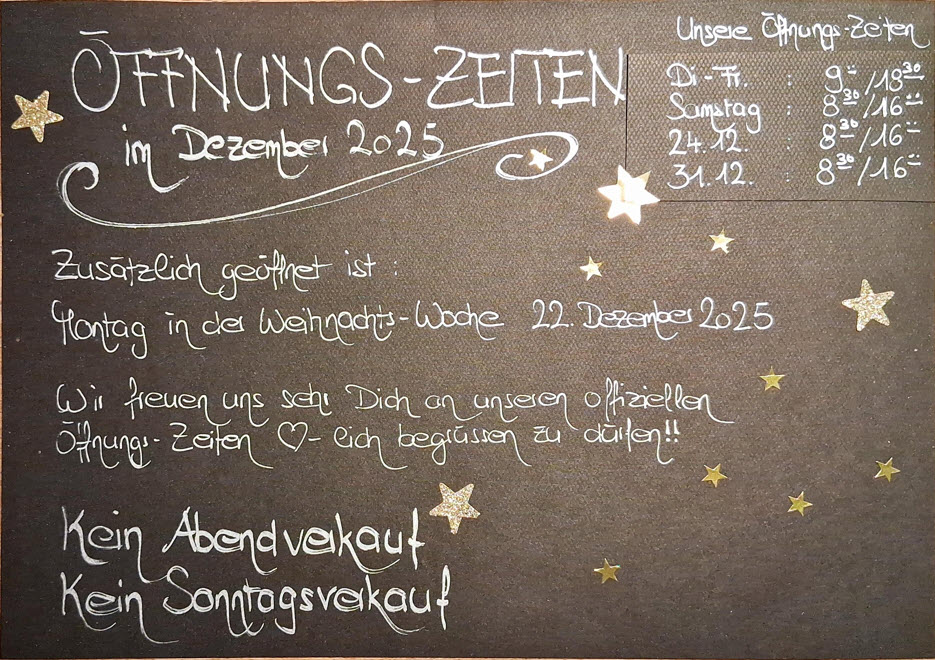 ÖFFNUNGS-ZEITEN
im Dezember 2025
Unsere Öffnungs-Zeiten
Di-Fr. : 9.00/18.30
Samstag : 8.30/16.00
24.12. : 8.30/16.00
31.12. : 8.30/16.00
Zusätzlich geöffnet ist :
Montag in der Weihnachts-Woche 22. Dezember 2025
Wir freuen uns sehr Dich an unseren offiziellen
Öffnungs-Zeiten ♡-lich begrüssen zu dürfen!!
Kein Abendverkauf
Kein Sonntagsverkauf